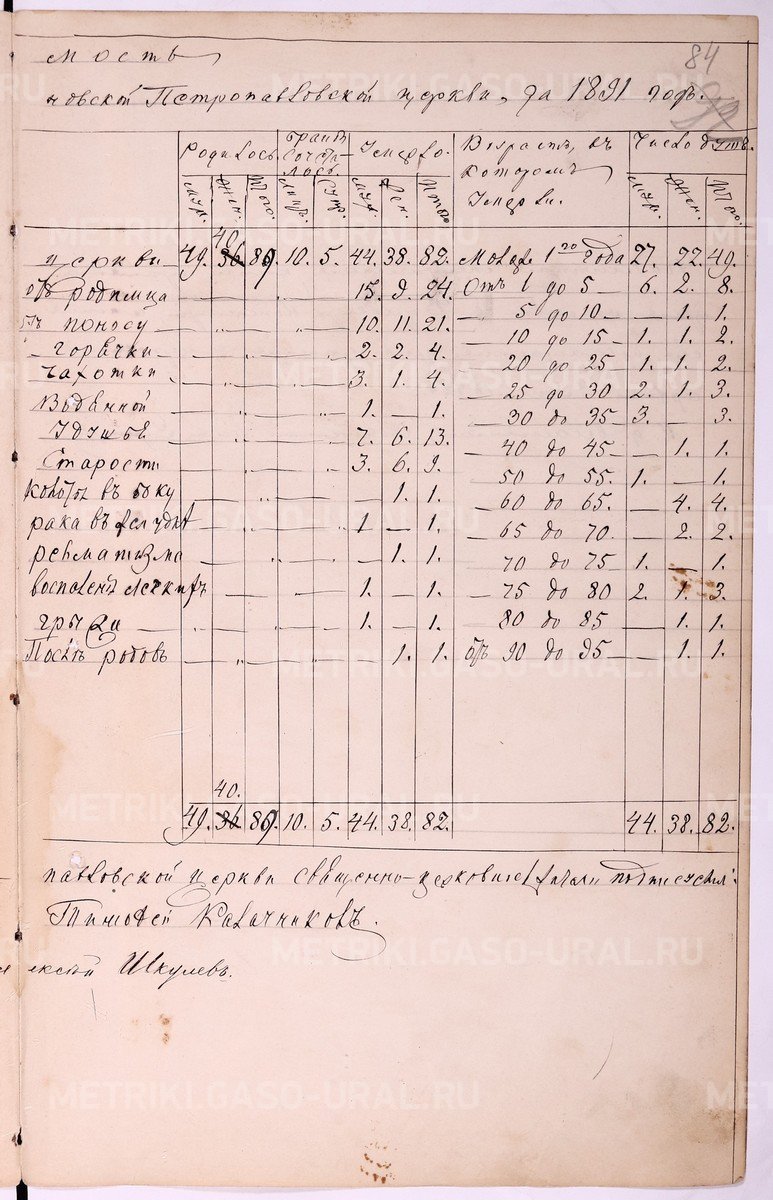 84
мость
човской Петропавловской церкви, за 1891 годъ.
Родилось. Бракъ сочеталось. Умерло. Возрастъ, въ которомъ умерли. Число душъ.
Муж. Жен. Итого. Муж. Жен. Итого Муж. Жен. Итого.
40.
церкви 49. 36 89. 10. 5. 44. 38. 82. Моложе 1го года 27. 22. 49.
отъ родимца — „ — — „ — 15. 9. 24. Отъ 1 до 5 — 6. 2. 8.
отъ поносу — „ — — „ — 10. 11. 21. — 5 до 10 — — 1. 1.
— горячки — „ — — „ — 2. 2. 4. — 10 до 15 — 1. 1. 2.
— чахотки — „ — — „ — 3. 1. 4. — 20 до 25 — 1. 1. 2.
Водянной — „ — — „ — 1. — 1. — 25 до 30 2. 1. 3.
Удушья — „ — — „ — 7. 6. 13. — 30 до 35 3. — 3.
Старости — „ — — „ — 3. 6. 9. — 40 до 45 — — 1. 1.
колотья въ боку — „ — — „ — — 1. 1. 50 до 55. 1. — 1.
рака въ желудкѣ — „ — — „ — 1. — 1. — 60 до 65. — 4. 4.
ревматизма — „ — — „ — — 1. 1. — 65 до 70. — 2. 2.
воспаленія легкихъ — „ — — „ — 1. — 1. — 70 до 75 1. — 1.
— 75 до 80 2. 1. 3.
грыжи — „ — — „ — 1. — 1. 80 до 85 — 1. 1.
Послѣ родовъ — „ — — „ — — 1. 1. отъ 90 до 95 — — 1. 1.
40.
49. 36 89. 10. 5. 44. 38. 82. 44. 38. 82.
павловской церкви священно-церковнослужители подписуемся:
Тимофей Калачниковъ.
лексѣй Шкулевъ.
METRIKI.GASO-URAL.RU